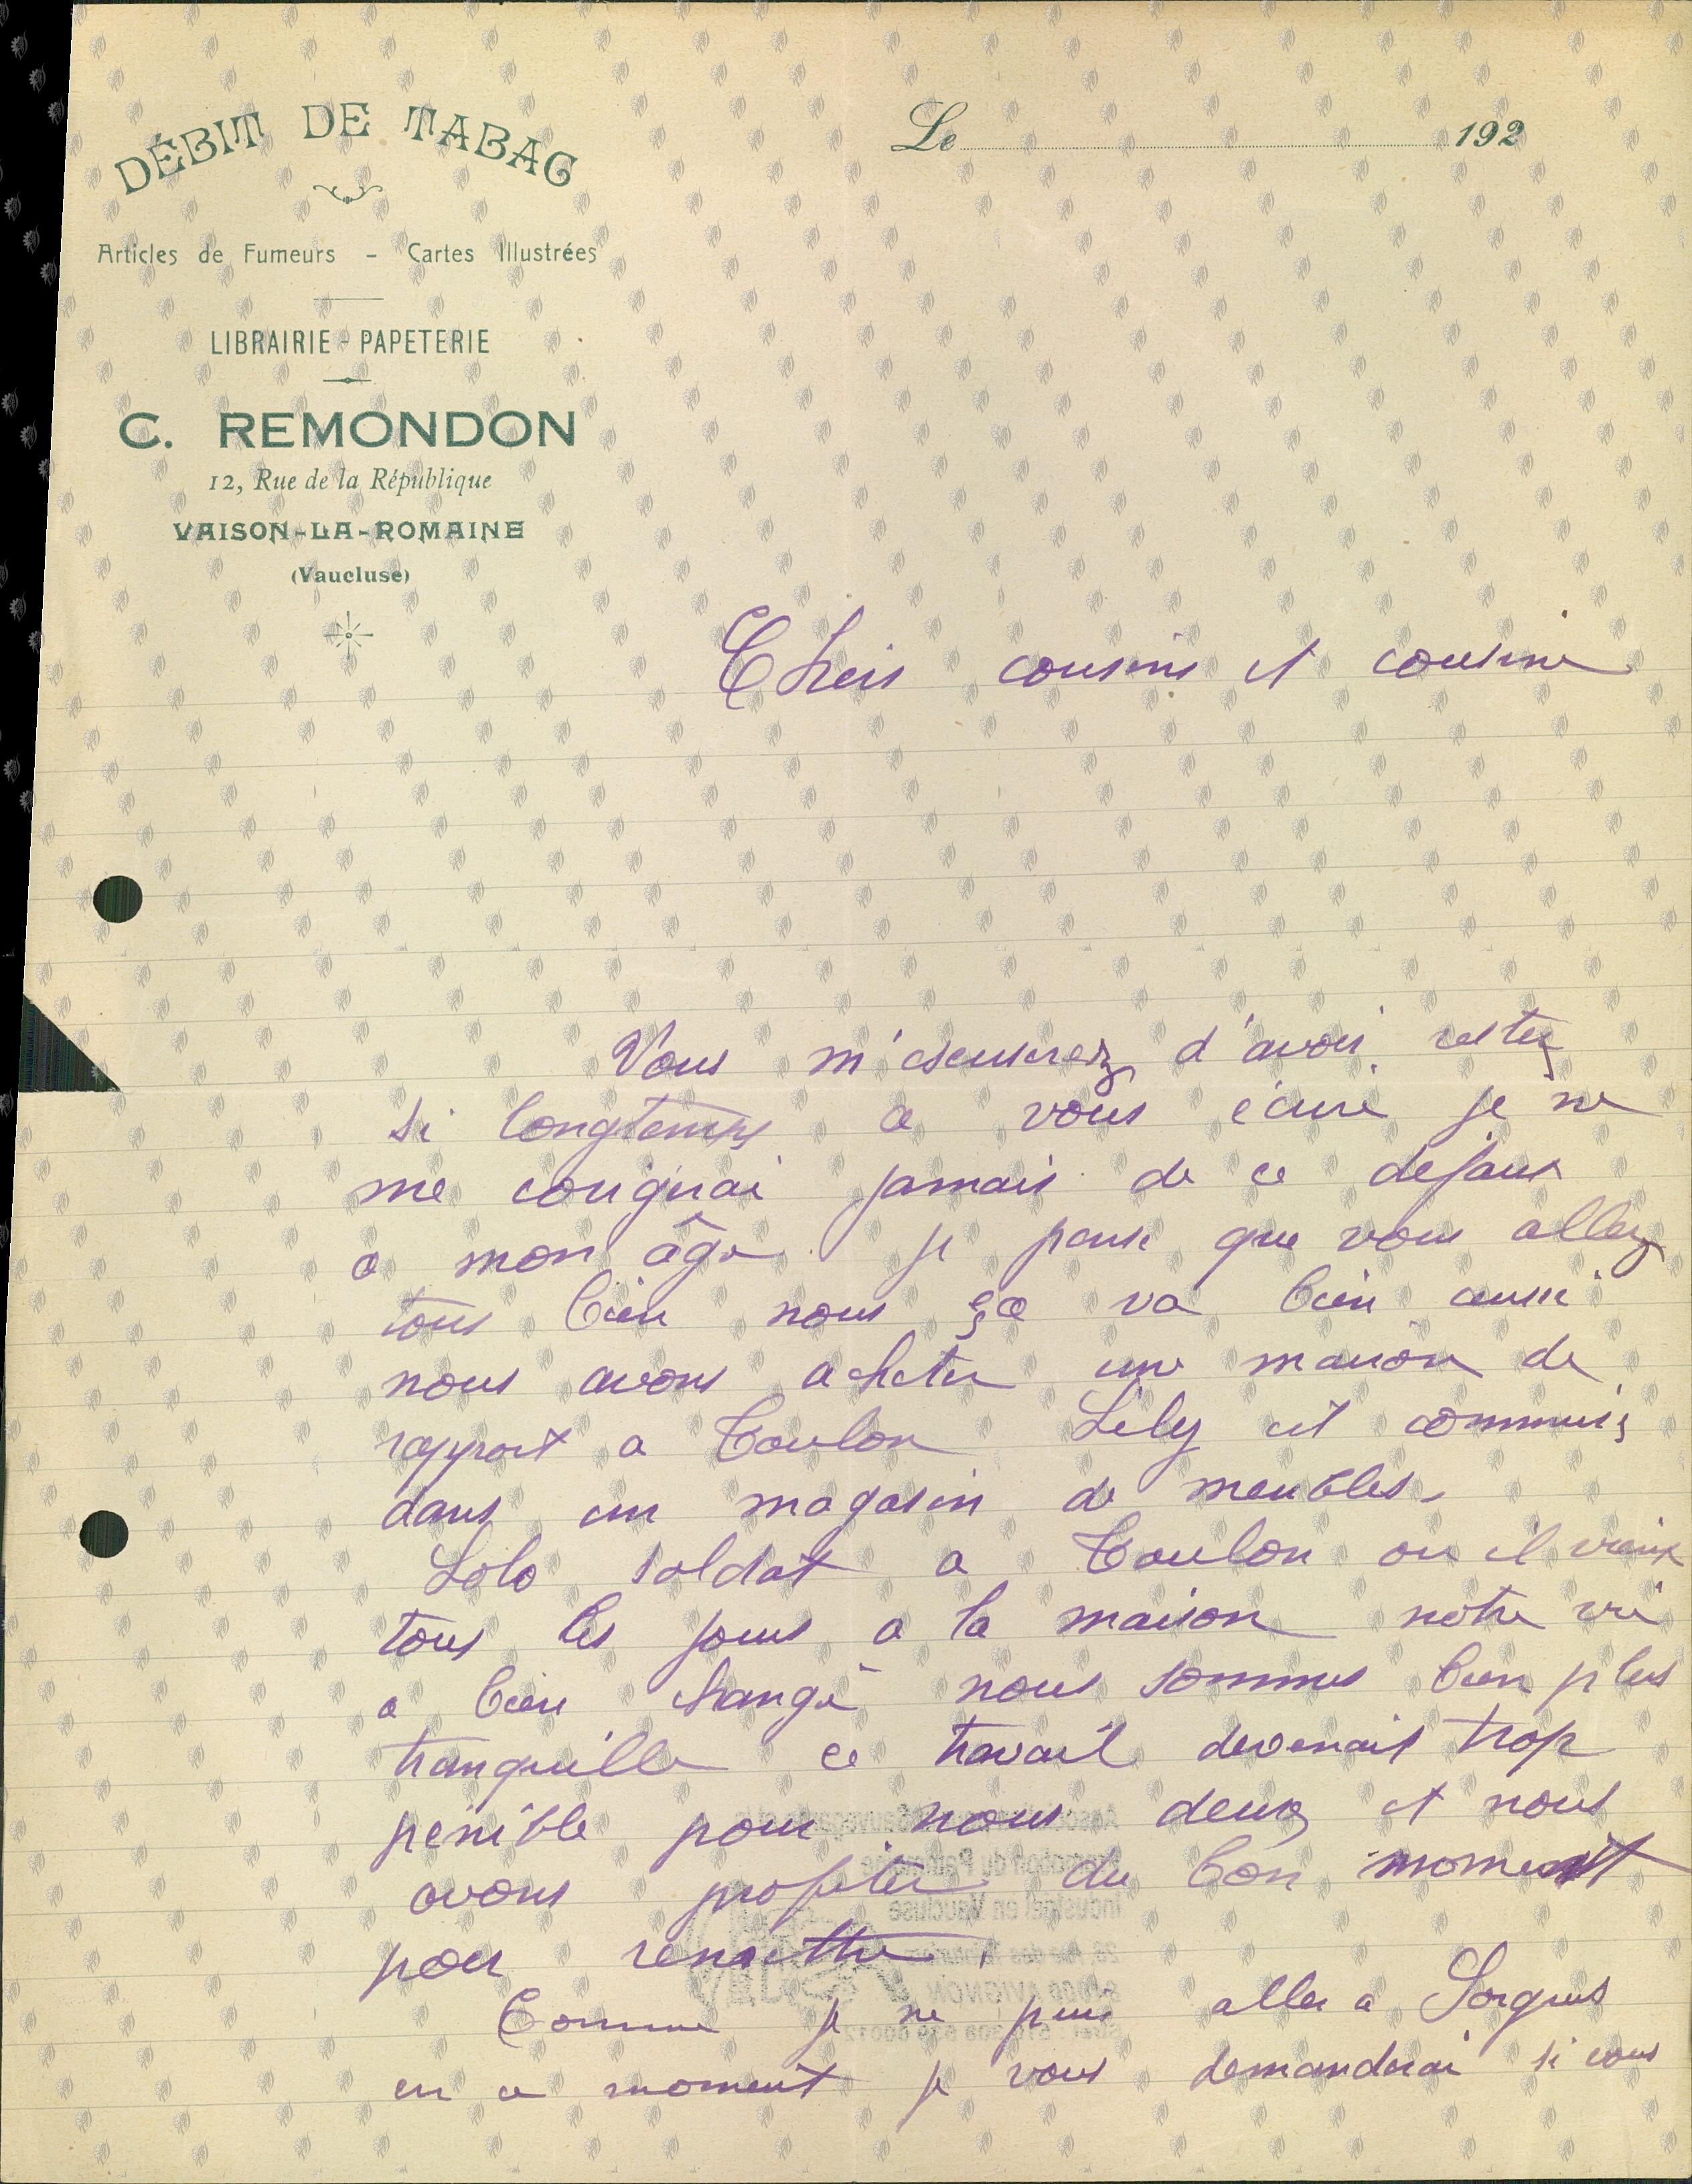 DÉBIT DE TABAC
Le 192
Articles de Fumeurs - Cartes Illustrées
LIBRAIRIE - PAPETERIE
C. REMONDON
12, Rue de la République
VAISON-LA-ROMAINE
(Vaucluse)
Chers cousins et cousine
Vous m'escuserez d'avoir restez
si longtemps a vous écrire je ne
me corigerai jamais de ce defaut
a mon âge je pense que vous allez
tous bien nous ça va bien aussi
nous avons acheter une maison de
rapport a Toulon Lily est commis
dans un magasin de meubles.
Lolo soldat a Toulon ou il vient
tous les jours a la maison notre vie
a bien changé nous sommes bien plus
tranquille ce travail devenait trop
penible pour nous deux et nous
avons profiter du bon moment
pour remettre.
Comme je ne peux aller a Sorgues
en ce moment je vous demanderai si vous
Promotion du Patrimoine
Industriel en Vaucluse
AVIGNON